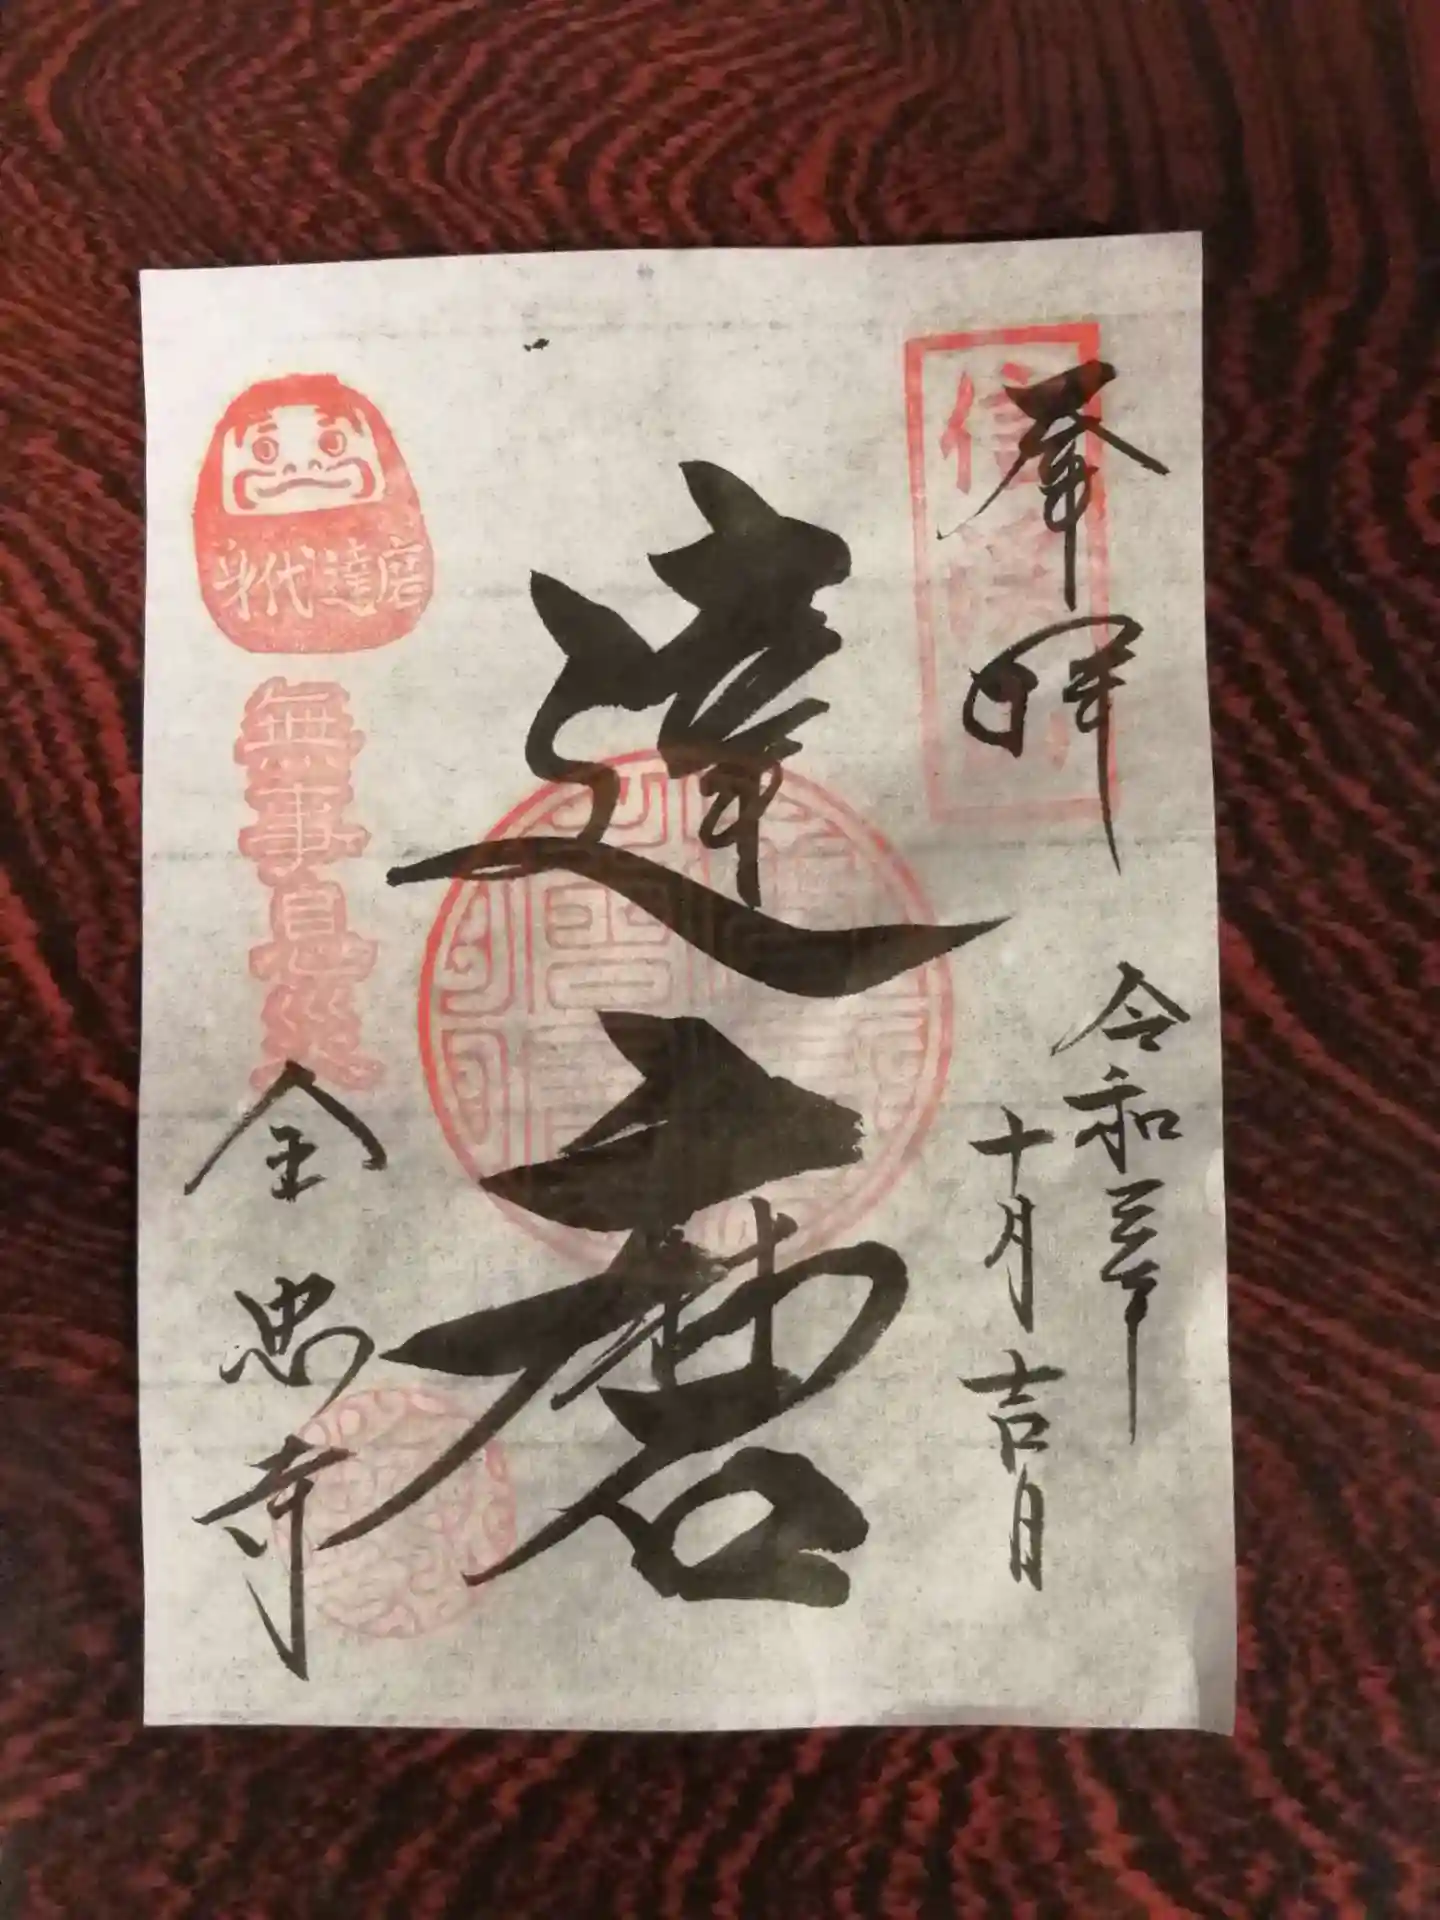 奉拝
令和三年
十月吉日
達磨
身代達磨
無事息災
全忠寺